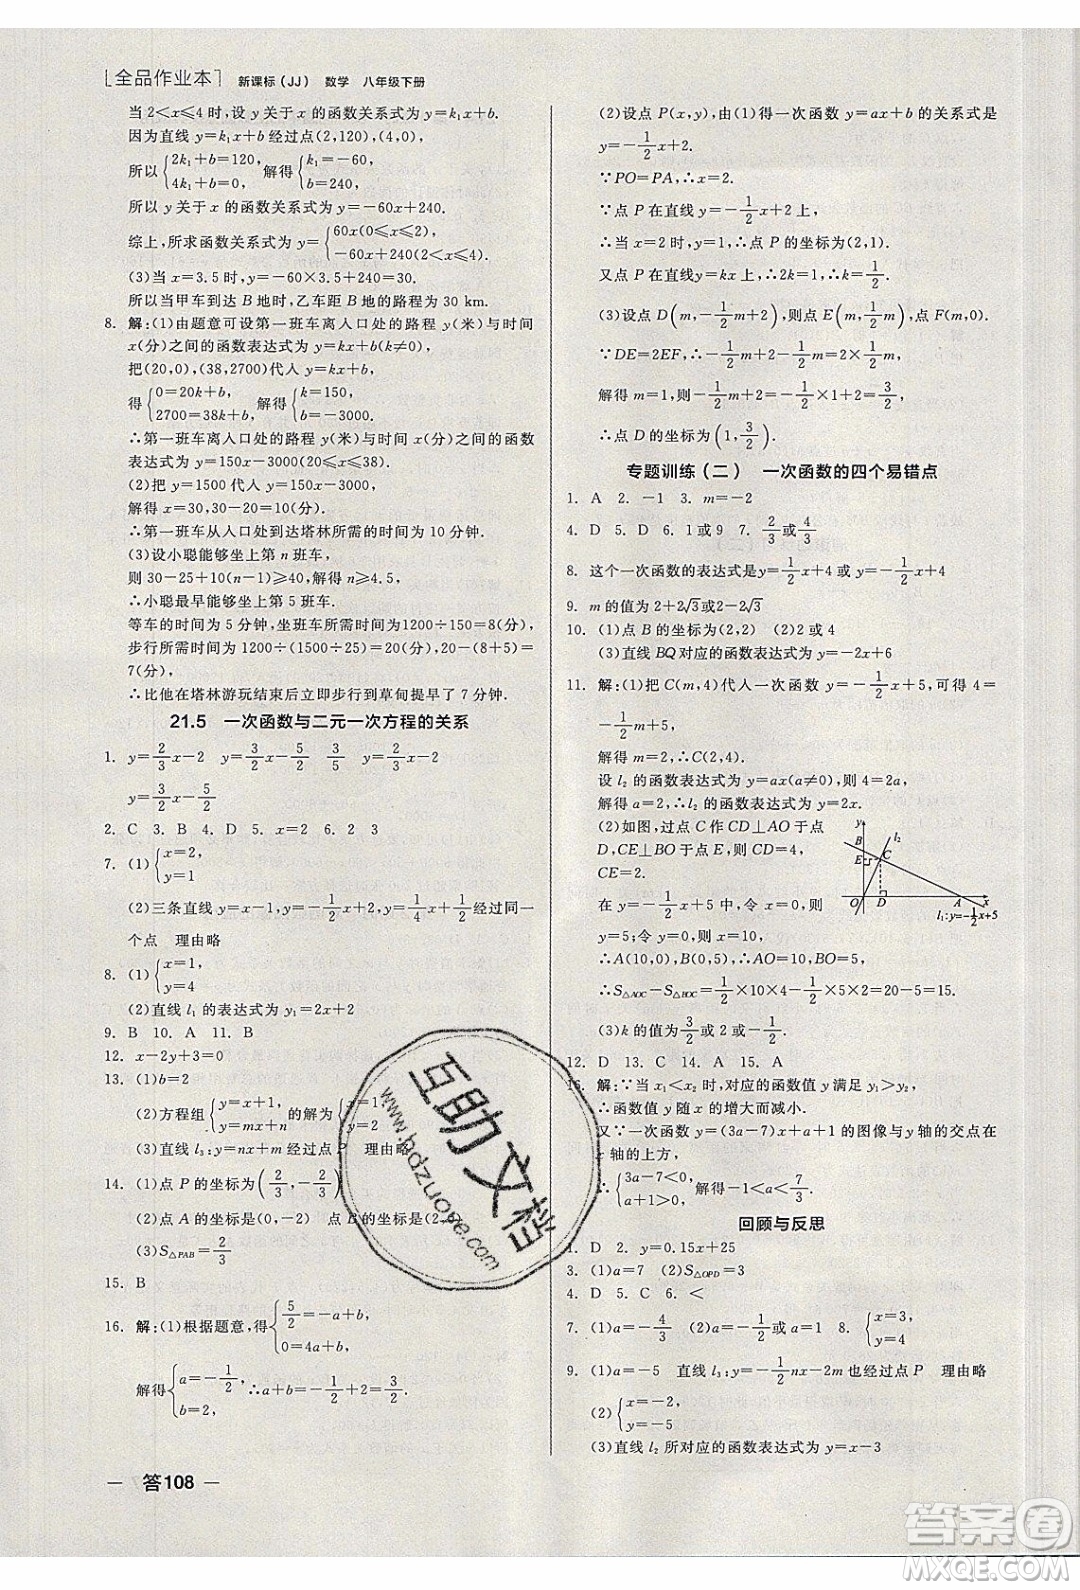 [全品作业本] 新课标(JJ) 数学 八年级下册
当2<x≤4时,设y关于x的函数关系式为y=k₁x+b.
因为直线y=k₁x+b经过点(2,120),(4,0),
所以{2k₁+b=120, 4k₁+b=0, 解得{k₁=-60, b=240.
所以y关于x的函数关系式为y=-60x+240.
综上,所求函数关系式为y={60x(0≤x≤2), -60x+240(2<x≤4).
(3)当x=3.5时,y=-60×3.5+240=30.
所以当甲车到达B地时,乙车距B地的路程为30 km.
8. 解:(1)由题意可设第一班车离入口处的路程y(米)与时间
x(分)之间的函数表达式为y=kx+b(k≠0).
把(20,0),(38,2700)代入y=kx+b,
得{0=20k+b, 2700=38k+b, 解得{k=150, b=-3000.
∴第一班车离入口处的路程y(米)与时间x(分)之间的函数
表达式为y=150x-3000(20≤x≤38).
(2)把y=1500代入y=150x-3000,
解得x=30,30-20=10(分).
∴第一班车从入口处到达塔林所需的时间为10分钟.
(3)设小聪能够坐上第n班车,
则30-25+10(n-1)≥40,解得n≥4.5,
∴小聪最早能够坐上第5班车.
等车的时间为5分钟,坐班车所需时间为1200÷150=8(分),
步行所需时间为1200÷(1500÷25)=20(分),20-(8+5)=
7(分),
∴比他在塔林游玩结束后立即步行到草甸提早了7分钟.
21.5 一次函数与二元一次方程的关系
1. y=2/3x-2 y=3/2x-5/2 2/3 3/2 y=2/3x-2
y=3/2x-5/2
2. C 3. B 4. D 5. x=2 6. 2 3
7. (1){x=2, y=1
(2)三条直线y=x-1,y=1/2x,y=1/4x+1/2经过同一
个点 理由略
8. (1){x=1, y=4
(2)直线l₁的表达式为y₁=2x+2
9. B 10. A 11. B
12. x-2y+3=0
13. (1)b=2
(2)方程组{y=x+1, y=mx+n的解为{x=1, y=2
(3)直线l₃:y=nx+m经过点P 理由略
14. (1)点P的坐标为(2/3,-2/3)
(2)点A的坐标是(0,-2) 点B的坐标是(2,
(3)S△PAB=2/3
15. B
16. 解:(1)根据题意,得{5/2=-a+b, 0=4a+b,
解得{a=-1/2, b=2, ∴a+b=-1/2+2=3/2.
— 答108 —
(2)设点P(x,y),由(1)得一次函数y=ax+b的关系式是
y=-1/2x+2.
∵PO=PA,∴x=2.
∵点P在直线y=-1/2x+2上,
∴当x=2时,y=1,∴点P的坐标为(2,1).
又点P在直线y=kx上,∴2k=1,∴k=1/2.
(3)设点D(m,-1/2m+2),则点E(m,1/2m),F(m,0).
∵DE=2EF,∴-1/2m+2-1/2m=2×1/2m,
解得m=1,∴-1/2m+2=-1/2×1+2=3/2,
∴点D的坐标为(1,3/2).
专题训练(二) 一次函数的四个易错点
1. A 2. -1 3. m=-2
4. D 5. D 6. 1或9 7. 2/3或4/3
8. 这个一次函数的表达式是y=1/2x+4或y=-1/2x+4
9. m的值为2+2√3或2-2√3
10. (1)点B的坐标为(2,2) (2)2或4
(3)直线BQ对应的函数表达式为y=-2x+6
11. 解:(1)把C(m,4)代入一次函数y=-1/2x+5,可得4=
-1/2m+5,
解得m=2,∴C(2,4).
设l₂的函数表达式为y=ax(a≠0),则4=2a,
解得a=2,∴l₂的函数表达式为y=2x.
(2)如图,过点C作CD⊥AO于点
D,CE⊥BO于点E,则CD=4,
CE=2.
在y=-1/2x+5中,令x=0,则
y=5;令y=0,则x=10,
∴A(10,0),B(0,5),∴AO=10,BO=5,
∴S△AOC-S△BOC=1/2×10×4-1/2×5×2=20-5=15.
(3)k的值为3/2或2或-1/2
y B l₂ E C O D A x l₁:y=-1/2x+5
12. D 13. C 14. A 15. A
16. 解:∵当x₁<x₂时,对应的函数值y满足y₁>y₂,
∴函数值y随x的增大而减小.
又∵一次函数y=(3a-7)x+a+1的图像与y轴的交点在
轴的上方,
∴{3a-7<0, a+1>0, 解得-1<a<7/3.
回顾与反思
1. D 2. y=0.15x+25
3. (1)a=5 (2)S△OPD=3
4. D 5. C 6. <
7. (1)a=-4/3 (2)a=-1/2或a=1 8. {x=3, y=4
9. (1)a=-5 直线l₃:y=-1/2nx-2m也经过点P 理由略
(2){x=-2, y=-5
(3)直线l₂所对应的函数表达式为y=x-3
互助文档
www.hdzuoye.com
答案圈
MXQE.COM